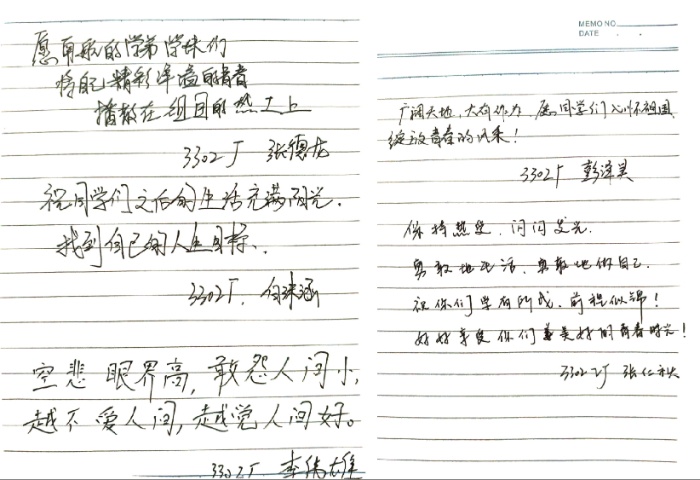 愿南航的学弟学妹们
将自己精彩洋溢的青春
播散在祖国的热土上
3302厂 张德龙
祝同学们之后的生活充满阳光.
找到自己的人生目标.
3302厂. 何
空悲眼界高,敢怨人间小,
越不爱人间,越觉人间好。
3302厂 李伟雄
MEMO NO.
DATE . .
广阔天地,大有作为,愿同学们入怀祖国
绽放青春的风采!
3302厂 彭
保持热爱,闪闪发光.
勇敢地生活,勇敢地做自己.
祝你们学有所成,前程似锦!
好好享受你们美好的青春时光!
3302厂 张仁